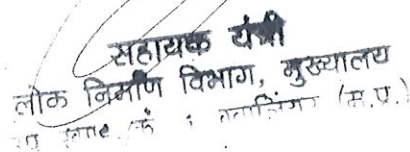 सहायक यंत्री
लोक निर्माण विभाग, मुख्यालय
(म.प्र.)